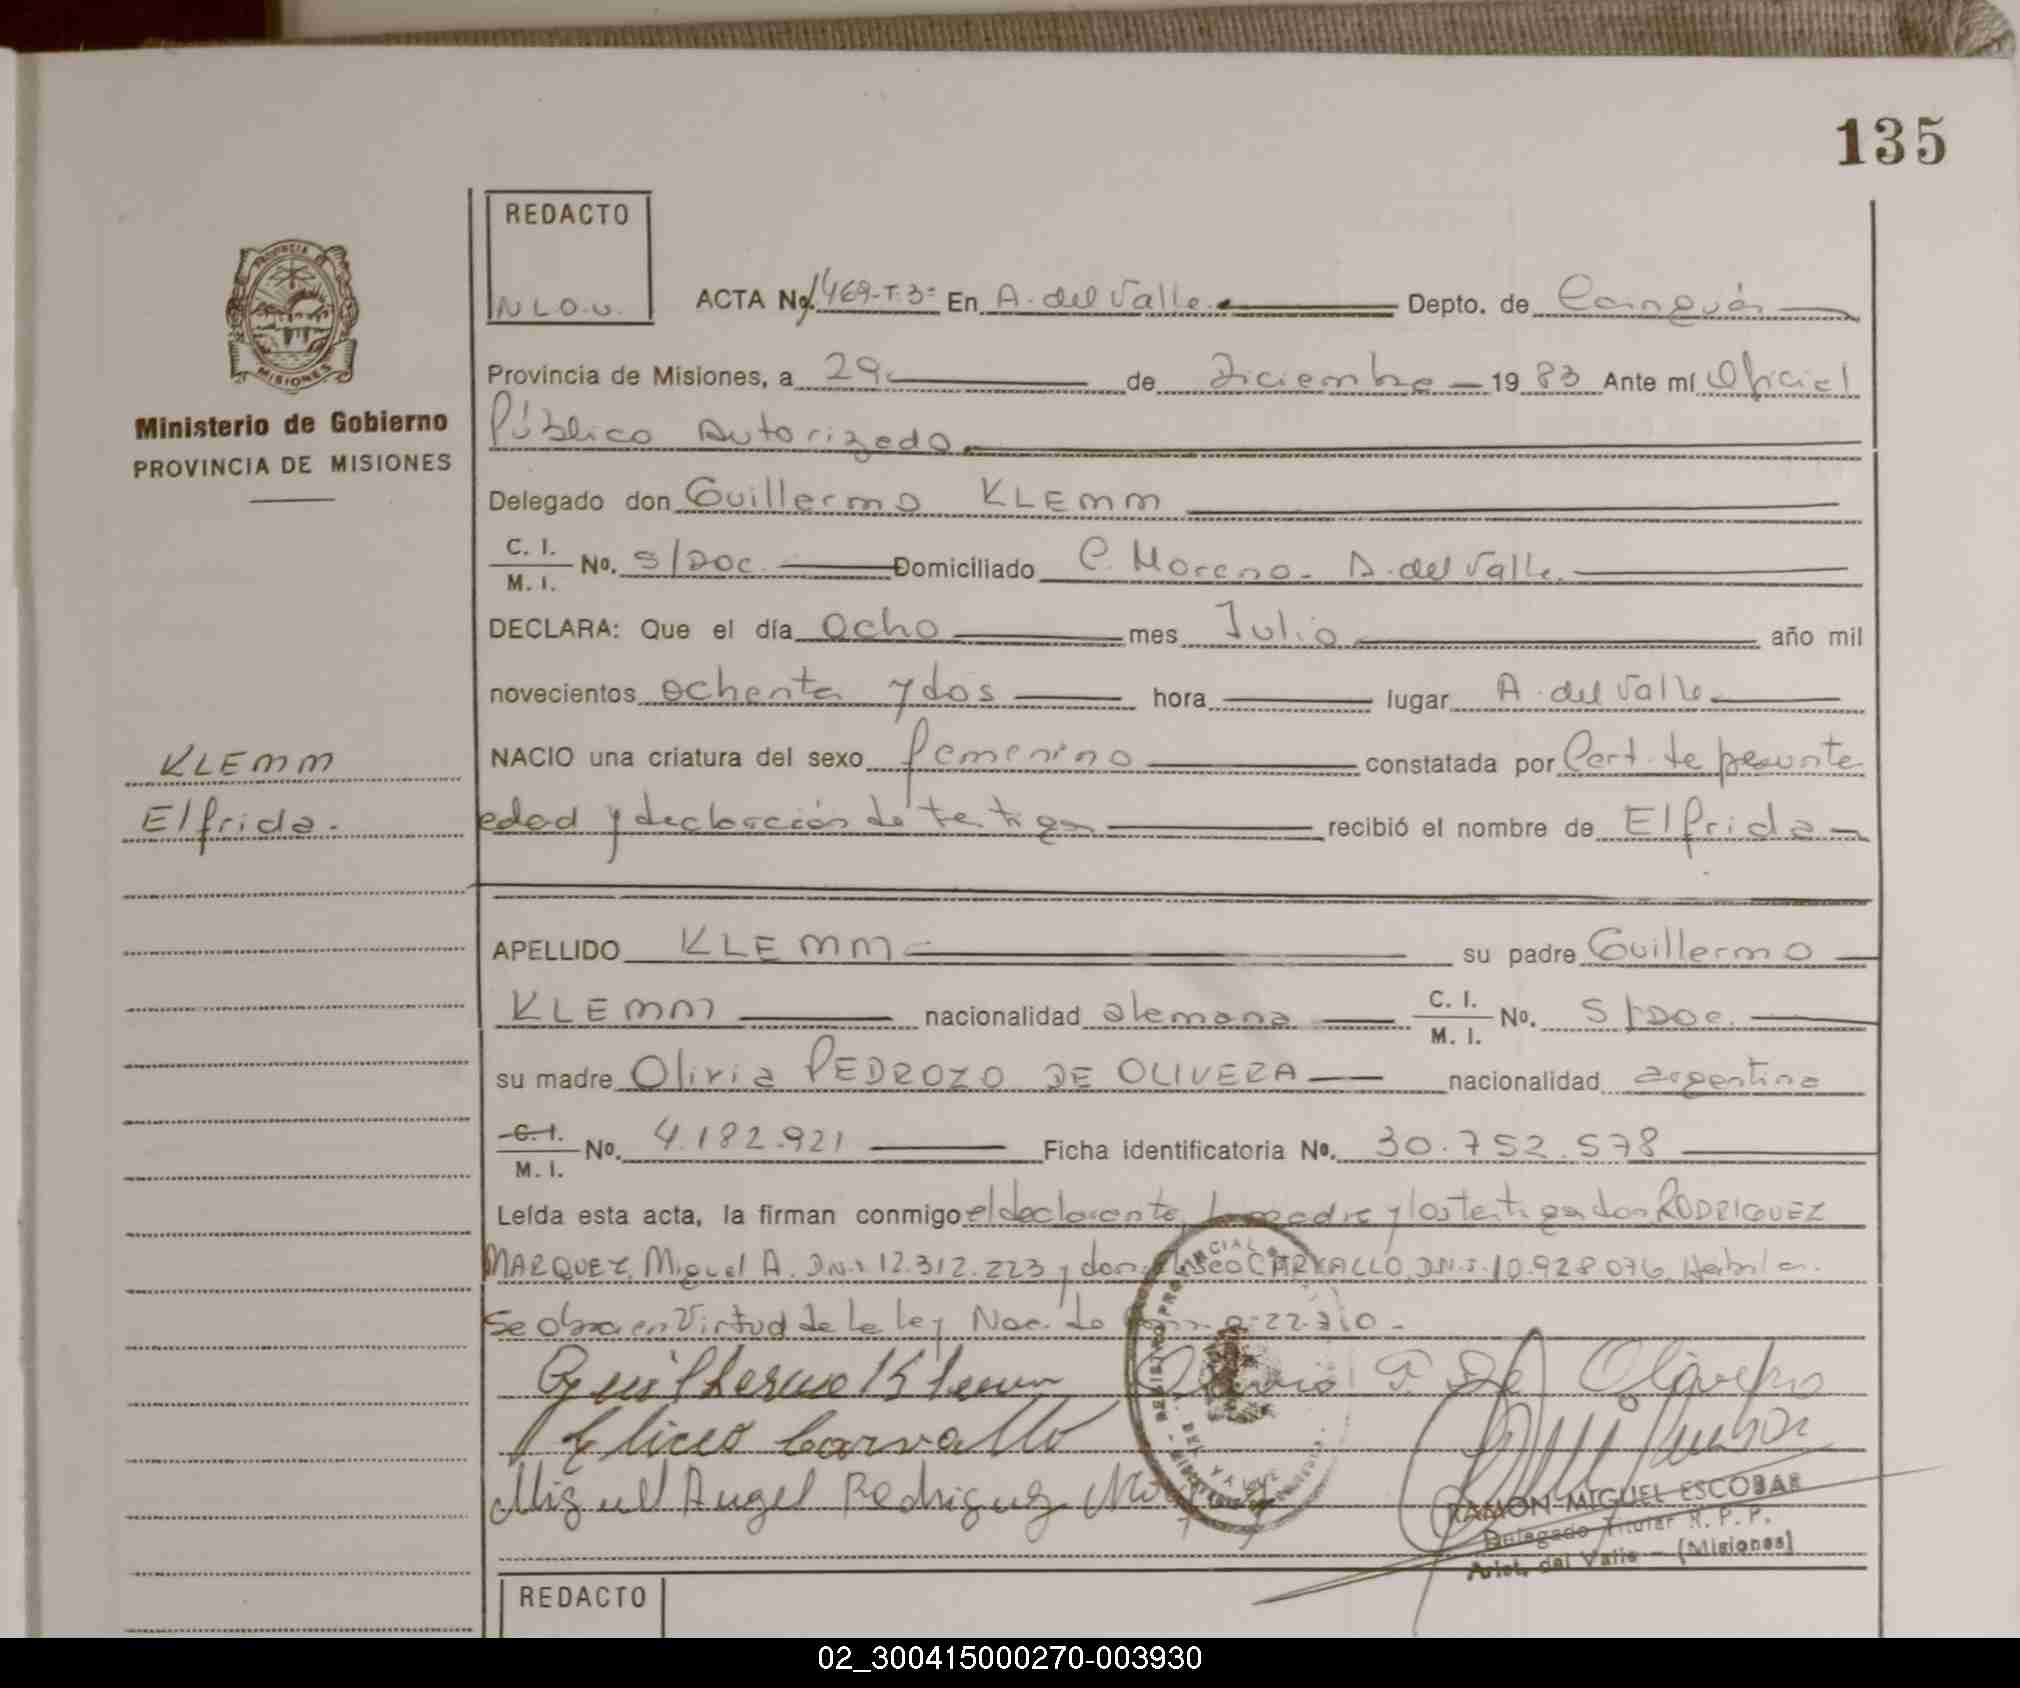 135
REDACTO
N L O.U.
ACTA No. 1469-T.3º En A. del Valle Depto. de Cainguás
Provincia de Misiones, a 29 de Diciembre 19 83 Ante mí Oficial
Público Autorizado
Ministerio de Gobierno
PROVINCIA DE MISIONES
Delegado don Guillermo KLEMM
C. I. M. I. No. S/Doc. Domiciliado C. Moreno - A. del Valle.
DECLARA: Que el día Ocho mes Julio año mil
novecientos ochenta y dos hora lugar A. del Valle
KLEMM
NACIO una criatura del sexo femenino constatada por Cert. de presunta
Elfrida.
edad y declaración de testigos recibió el nombre de Elfrida
APELLIDO KLEMM su padre Guillermo
KLEMM nacionalidad alemana C. I. M. I. No. S/Doc.
su madre Olivia PEDROZO DE OLIVERA nacionalidad argentina
C. I. M. I. No. 4.182.921 Ficha identificatoria No. 30.752.578
Leída esta acta, la firman conmigo el declarante, la madre y los testigos don RODRIGUEZ
MARQUEZ, Miguel A. DNI 12.312.223 y don Eliseo CARVALLO DNI 10.928.076
Se obra en Virtud de la ley Nac. de 22.210.-
Guilherme Klemm
Eliceo Carvallo
Miguel Angel Rodriguez
RAMON MIGUEL ESCOBAR
Delegado Titular R. P. P.
Arist. del Valle - (Misiones)
REDACTO
02_300415000270-003930